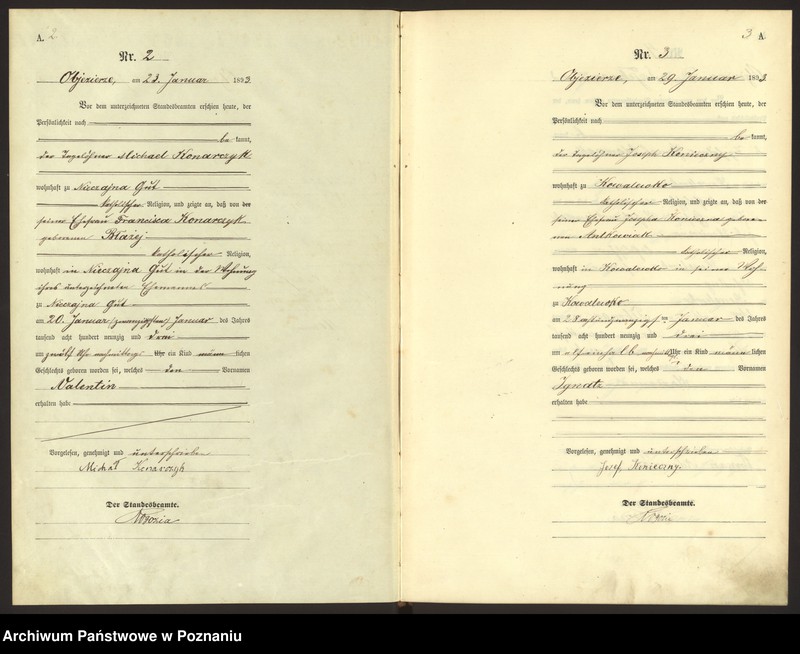 A. 2.
Nr. 2
Objezierze, am 23. Januar 1893
Vor dem unterzeichneten Standesbeamten erschien heute, der
Persönlichkeit nach
be kannt,
der Tagelöhner Michael Konarczyk
wohnhaft zu Nieczajna Gut
katholischer Religion, und zeigte an, daß von der
seiner Ehefrau Francisca Konarczyk
geborenen Błażej
katholischer Religion,
wohnhaft in Nieczajna Gut in der Wohnung
ihres unterzeichneten Ehemannes
zu Nieczajna Gut
am 20. Januar Januar des Jahres
tausend acht hundert neunzig und drei
um zwölf Uhr nachmittags Uhr ein Kind männ lichen
Geschlechts geboren worden sei, welches den Vornamen
Valentin
erhalten habe
Vorgelesen, genehmigt und unterschrieben
Michał Konarczyk
Der Standesbeamte.
3 A.
Nr. 3
Objezierze, am 29. Januar 1893
Vor dem unterzeichneten Standesbeamten erschien heute, der
Persönlichkeit nach
be kannt,
der Tagelöhner Joseph Konieczny
wohnhaft zu Kowalewko
katholischer Religion, und zeigte an, daß von der
seiner Ehefrau Josepha Konieczna gebore-
nen Antkowiak
katholischer Religion,
wohnhaft in Kowalewko in seiner Woh-
nung
zu Kowalewko
am 28 ten Januar des Jahres
tausend acht hundert neunzig und drei
um elfeinhalb Uhr ein Kind männ lichen
Geschlechts geboren worden sei, welches den Vornamen
Ignatz
erhalten habe
Vorgelesen, genehmigt und unterschrieben
Josef Konieczny
Der Standesbeamte.
Archiwum Państwowe w Poznaniu